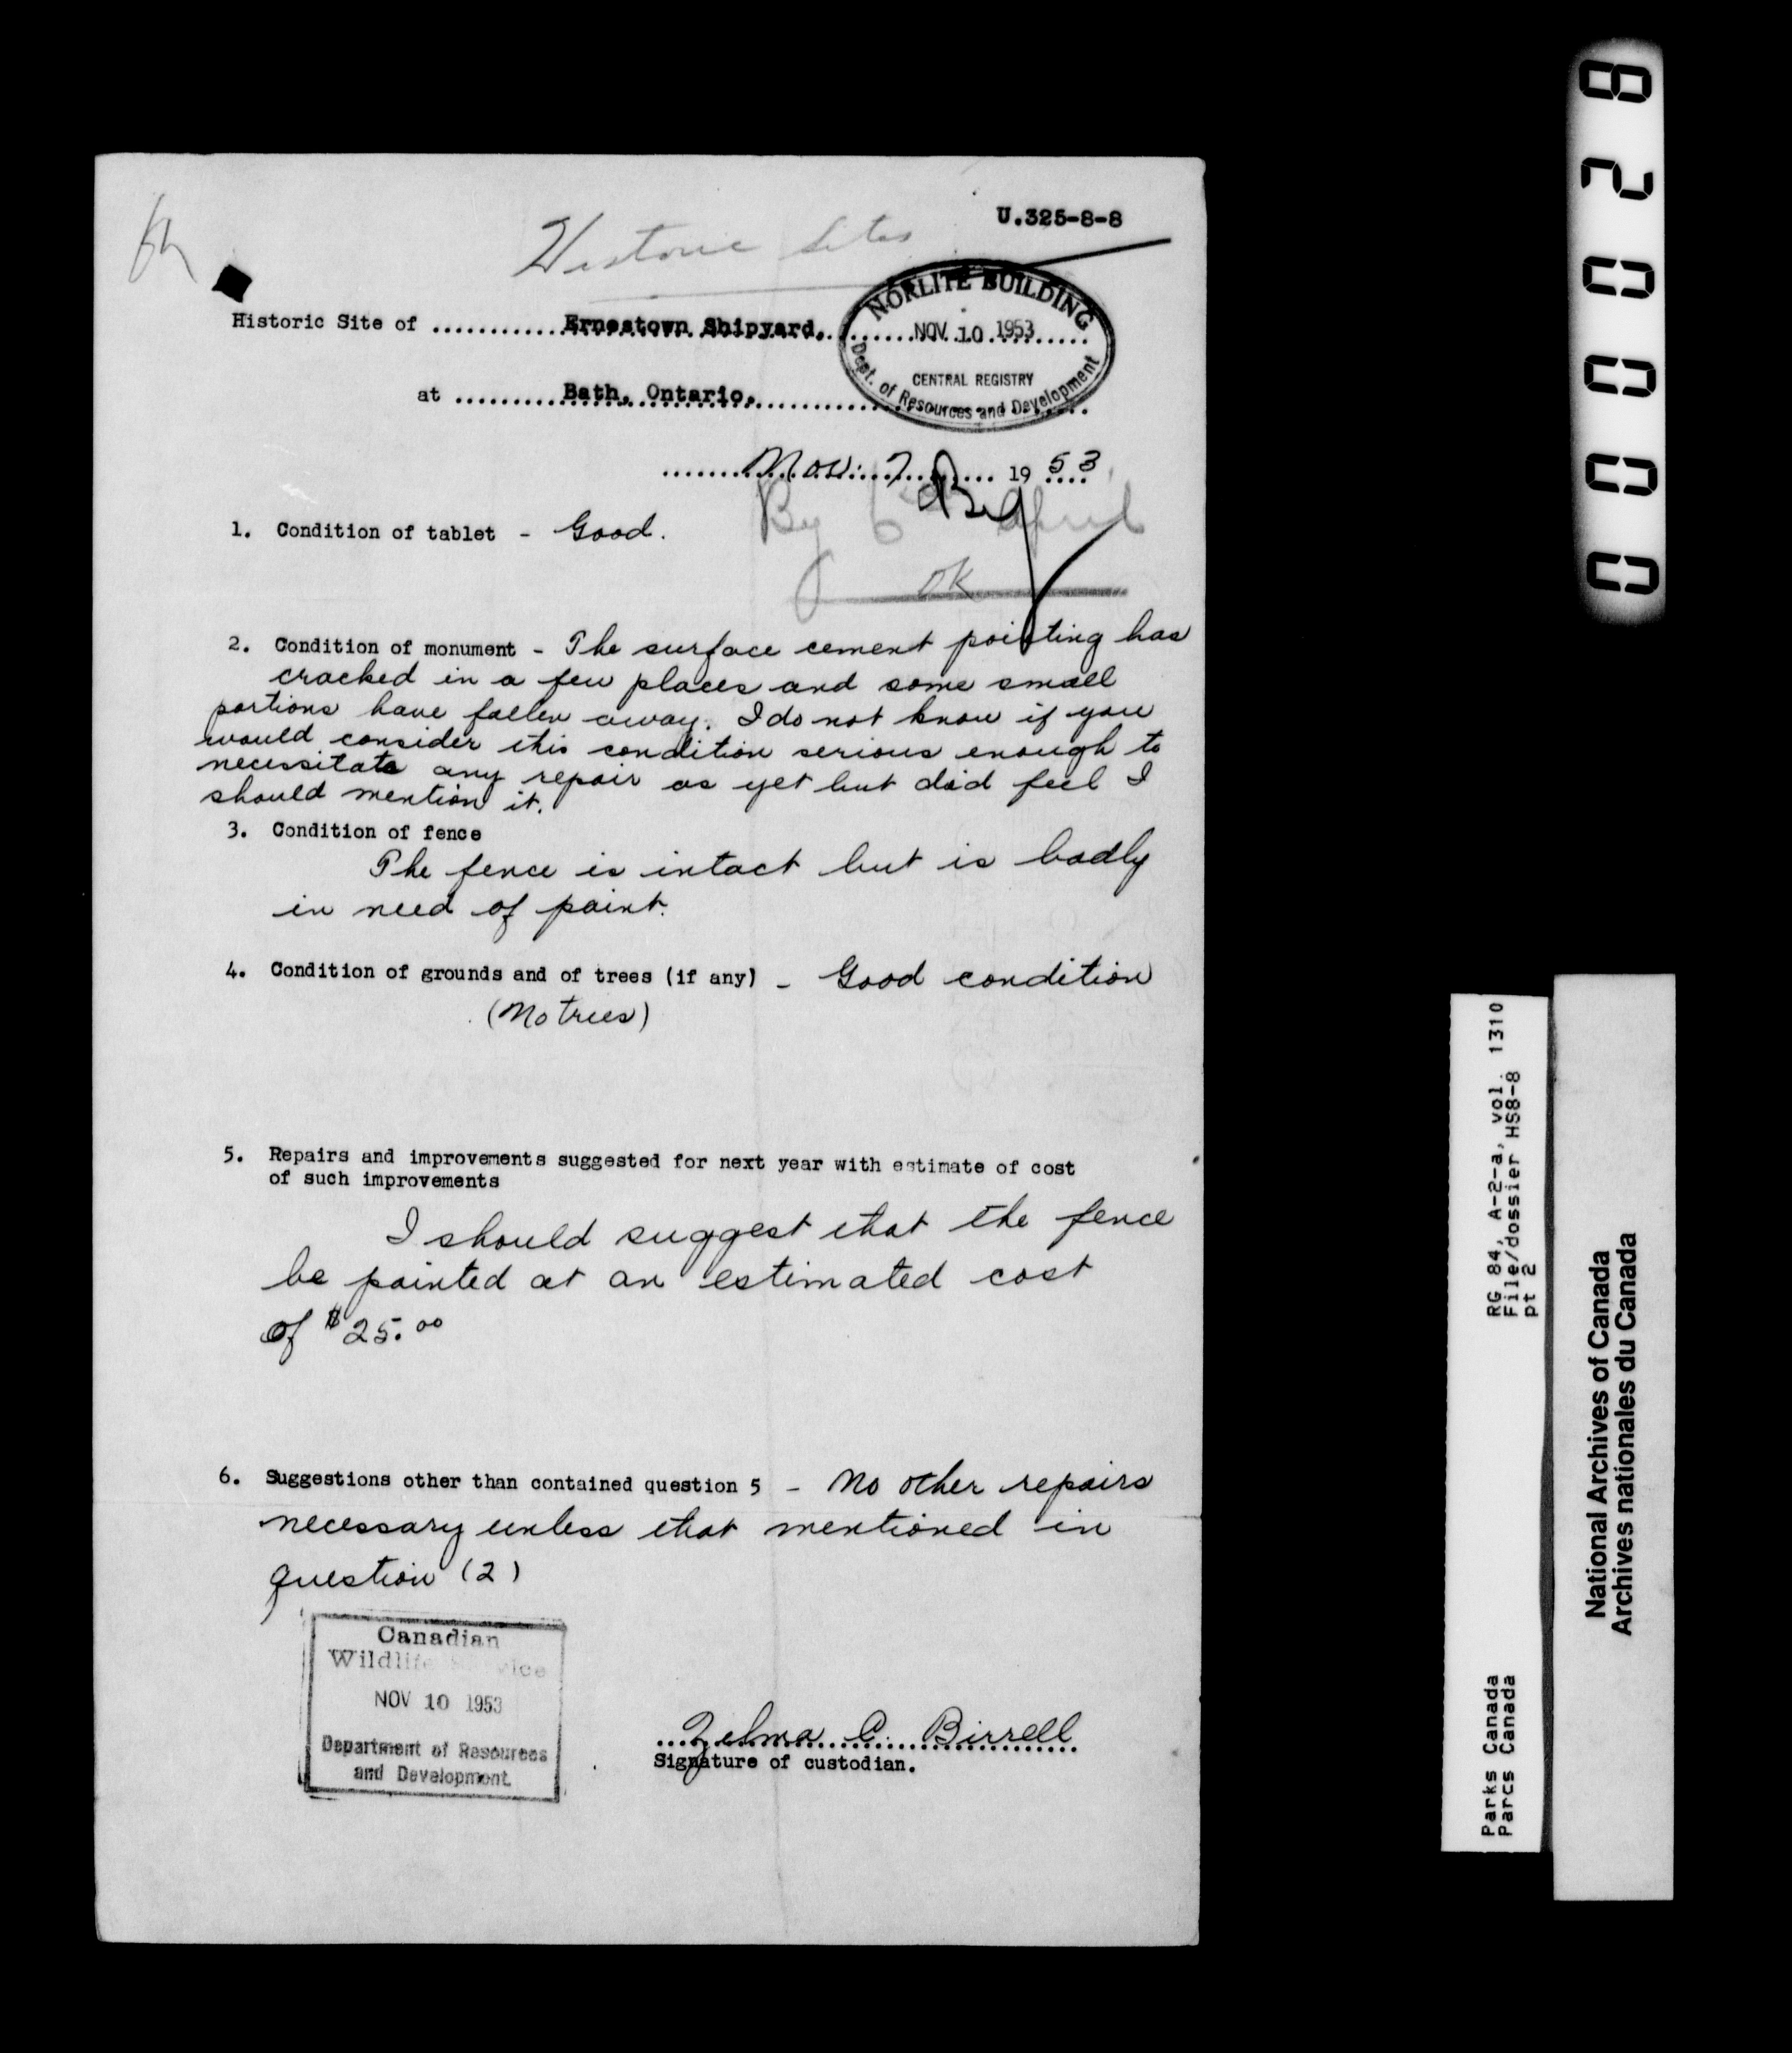 U.325-8-8
Historic Sites
NORLITE BUILDING
NOV 10 1953
CENTRAL REGISTRY
Dept. of Resources and Development
Historic Site of ............Ernestown Shipyard.
at ..........Bath, Ontario.
Nov. 7 1953
By 6 April
OK
1. Condition of tablet - Good.
2. Condition of monument - The surface cement pointing has
cracked in a few places and some small
portions have fallen away. I do not know if you
would consider this condition serious enough to
necessitate any repair as yet but did feel I
should mention it.
3. Condition of fence
The fence is intact but is badly
in need of paint.
4. Condition of grounds and of trees (if any) - Good condition
(No trees)
5. Repairs and improvements suggested for next year with estimate of cost
of such improvements
I should suggest that the fence
be painted at an estimated cost
of $25.00
6. Suggestions other than contained question 5 - No other repairs
necessary unless that mentioned in
question (2)
Canadian
Wildlife Service
NOV 10 1953
Department of Resources
and Development
Zelma C. Birrell
Signature of custodian.
000028
Parks Canada RG 84, A-2-a, vol. 1310
Parcs Canada File/dossier HS8-8
pt 2
National Archives of Canada
Archives nationales du Canada